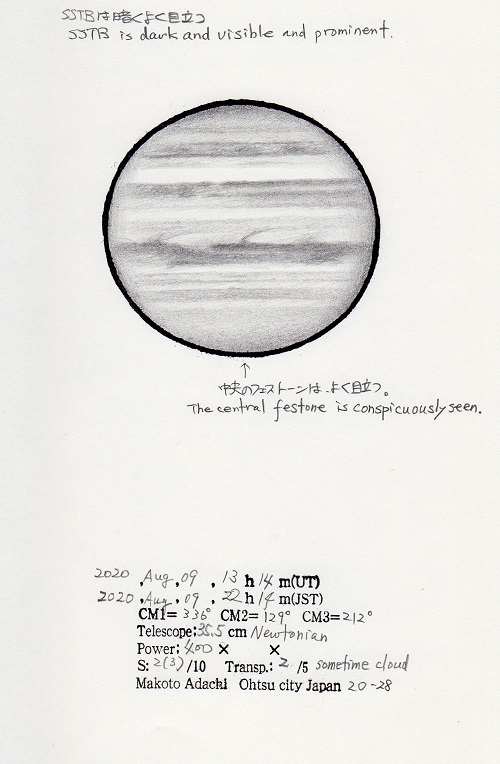 SSTBは暗くよく目立つ
SSTB is dark and visible and prominent.
↑
中央のフェストーンは、よく目立つ。
The central festone is conspicuously seen.
2020 , Aug , 09 , 13 h 14 m(UT)
2020 , Aug , 09 , 22 h 14 m(JST)
CM1= 336° CM2= 129° CM3= 212°
Telescope: 35.5 cm Newtonian
Power: 400 × ×
S: 2(3) /10 Transp.: 2 /5 sometime cloud
Makoto Adachi Ohtsu city Japan 20-28